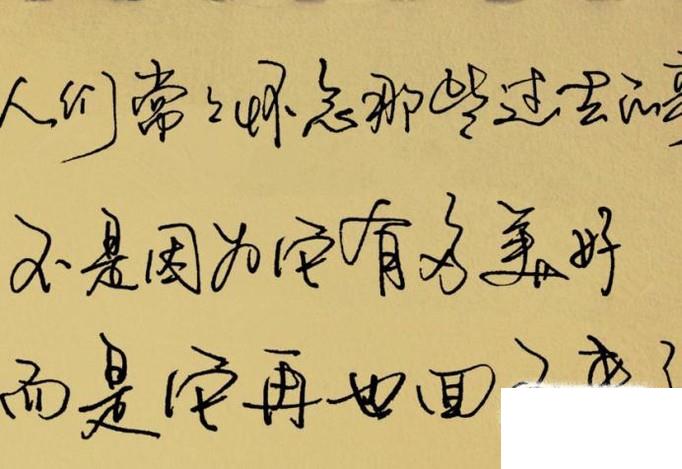 人们常々怀念那些过去的事
不是因为它有多美好
而是它再也回不来了